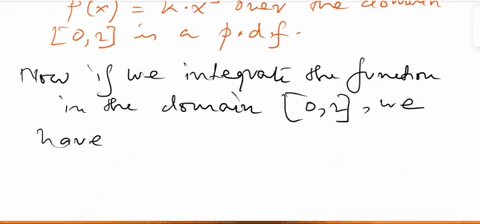 f(x) = k·x² over the domain
[0,2] is a p.d.f.
Now if we integrate the function
in the domain [0,2], we
have